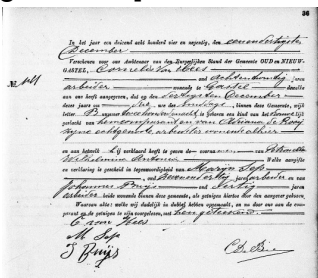 36
In het jaar een duizend acht honderd vier en negentig, den eenendertigsten
December
Verscheen voor ons Ambtenaar van den Burgerlijken Stand der Gemeente OUD EN NIEUW-
GASTEL, Cornelis van Hees
oud achtentwintig jaren
arbeider wonende te Gastel
die ons heeft aangegeven, dat op den dertigsten December
dezes jaars om uur des middags, binnen deze Gemeente, wijk
letter B nummer is geboren een kind van het vrouwelijk
geslacht van hem comparant en van Adriana de Rooy
zijne echtgenoote, arbeidster wonende alhier
en aan hetwelk hij verklaard heeft te geven de voornamen van
Wilhelmina Antonia Welke aangifte
en verklaring is geschied in tegenwoordigheid van Marijn
oud jaren arbeider en van
Johannes Buijs oud dertig jaren
arbeider beide wonende binnen deze gemeente, als getuigen hiertoe door den aangever gekozen.
Waarvan akte: welke wij dadelijk in dubbel hebben opgemaakt, en na door ons aan de com-
parant en de getuigen te zijn voorgelezen, met hen geteekend.
C van Hees
M
J Buijs